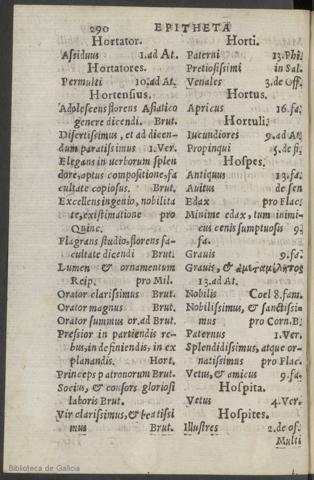 290 EPITHETA
Hortator.
Assiduus 1.ad At.
Hortatores.
Permulti 10.ad At.
Hortensius.
Adolescens florens Asiatico
genere dicendi. Brut.
Disertissimus, et ad dicen-
dum paratissimus 1.Ver.
Elegans in uerborum splen
dore, aptus compositione, fa
cultate copiosus. Brut.
Excellens ingenio, nobilita
te, existimatione pro
Quinc.
Flagrans studio, florens fa-
cultate dicendi Brut.
Lumen & ornamentum
Reip. pro Mil.
Orator clarissimus Brut.
Orator magnus Brut.
Orator summus or.ad Brut.
Pressior in partiendis re-
bus, in definiendis, in ex
planandis. Hort.
Princeps patronorum Brut.
Socius, & consors gloriosi
laboris Brut.
Vir clarissimus, & beatissi
mus Brut.
Horti.
Paterni 13.Phil.
Pretiosissimi in Sal.
Venales 3.de Off.
Hortus.
Apricus 16.fa.
Hortuli.
Iucundiores 9.ad At.
Propinqui 5.de fi.
Hospes.
Antiquus 13.fa.
Auitus de sen
Edax pro Flac.
Minime edax, tum inimi-
cus cenis sumptuosis 9.
fa.
Grauis 9.fa.
Grauis, &
13.ad At.
Nobilis Coel 8.fam.
Nobilissimus, & sanctissi-
mus pro Corn.B.
Paternus 1.Ver.
Splendidissimus, atque or-
natissimus pro Flac.
Vetus, & amicus 9.fa.
Hospita.
Vetus 4.Ver.
Hospites.
Illustres 2.de of.
Multi
Biblioteca de Galicia